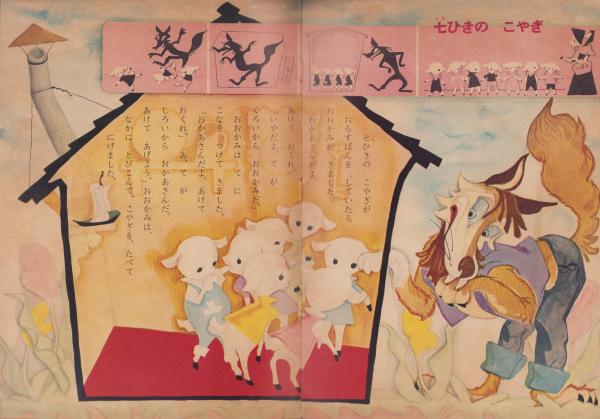 七ひきの こやぎ
七ひきの こやぎが
おるすばんを していたら
おおかみが きました。
「おかあさんだよ、
あけて おくれ」
「いやだよ。て が
くろいから おおかみだ」
おおかみは、て に
こなを つけて きました。
「おかあさんだよ、あけて
おくれ」「あ、て が
しろいから おかあさんだ。
あけて あげよう」おおかみは、
なかに とびこんで、こやぎを、たべて
にげました。